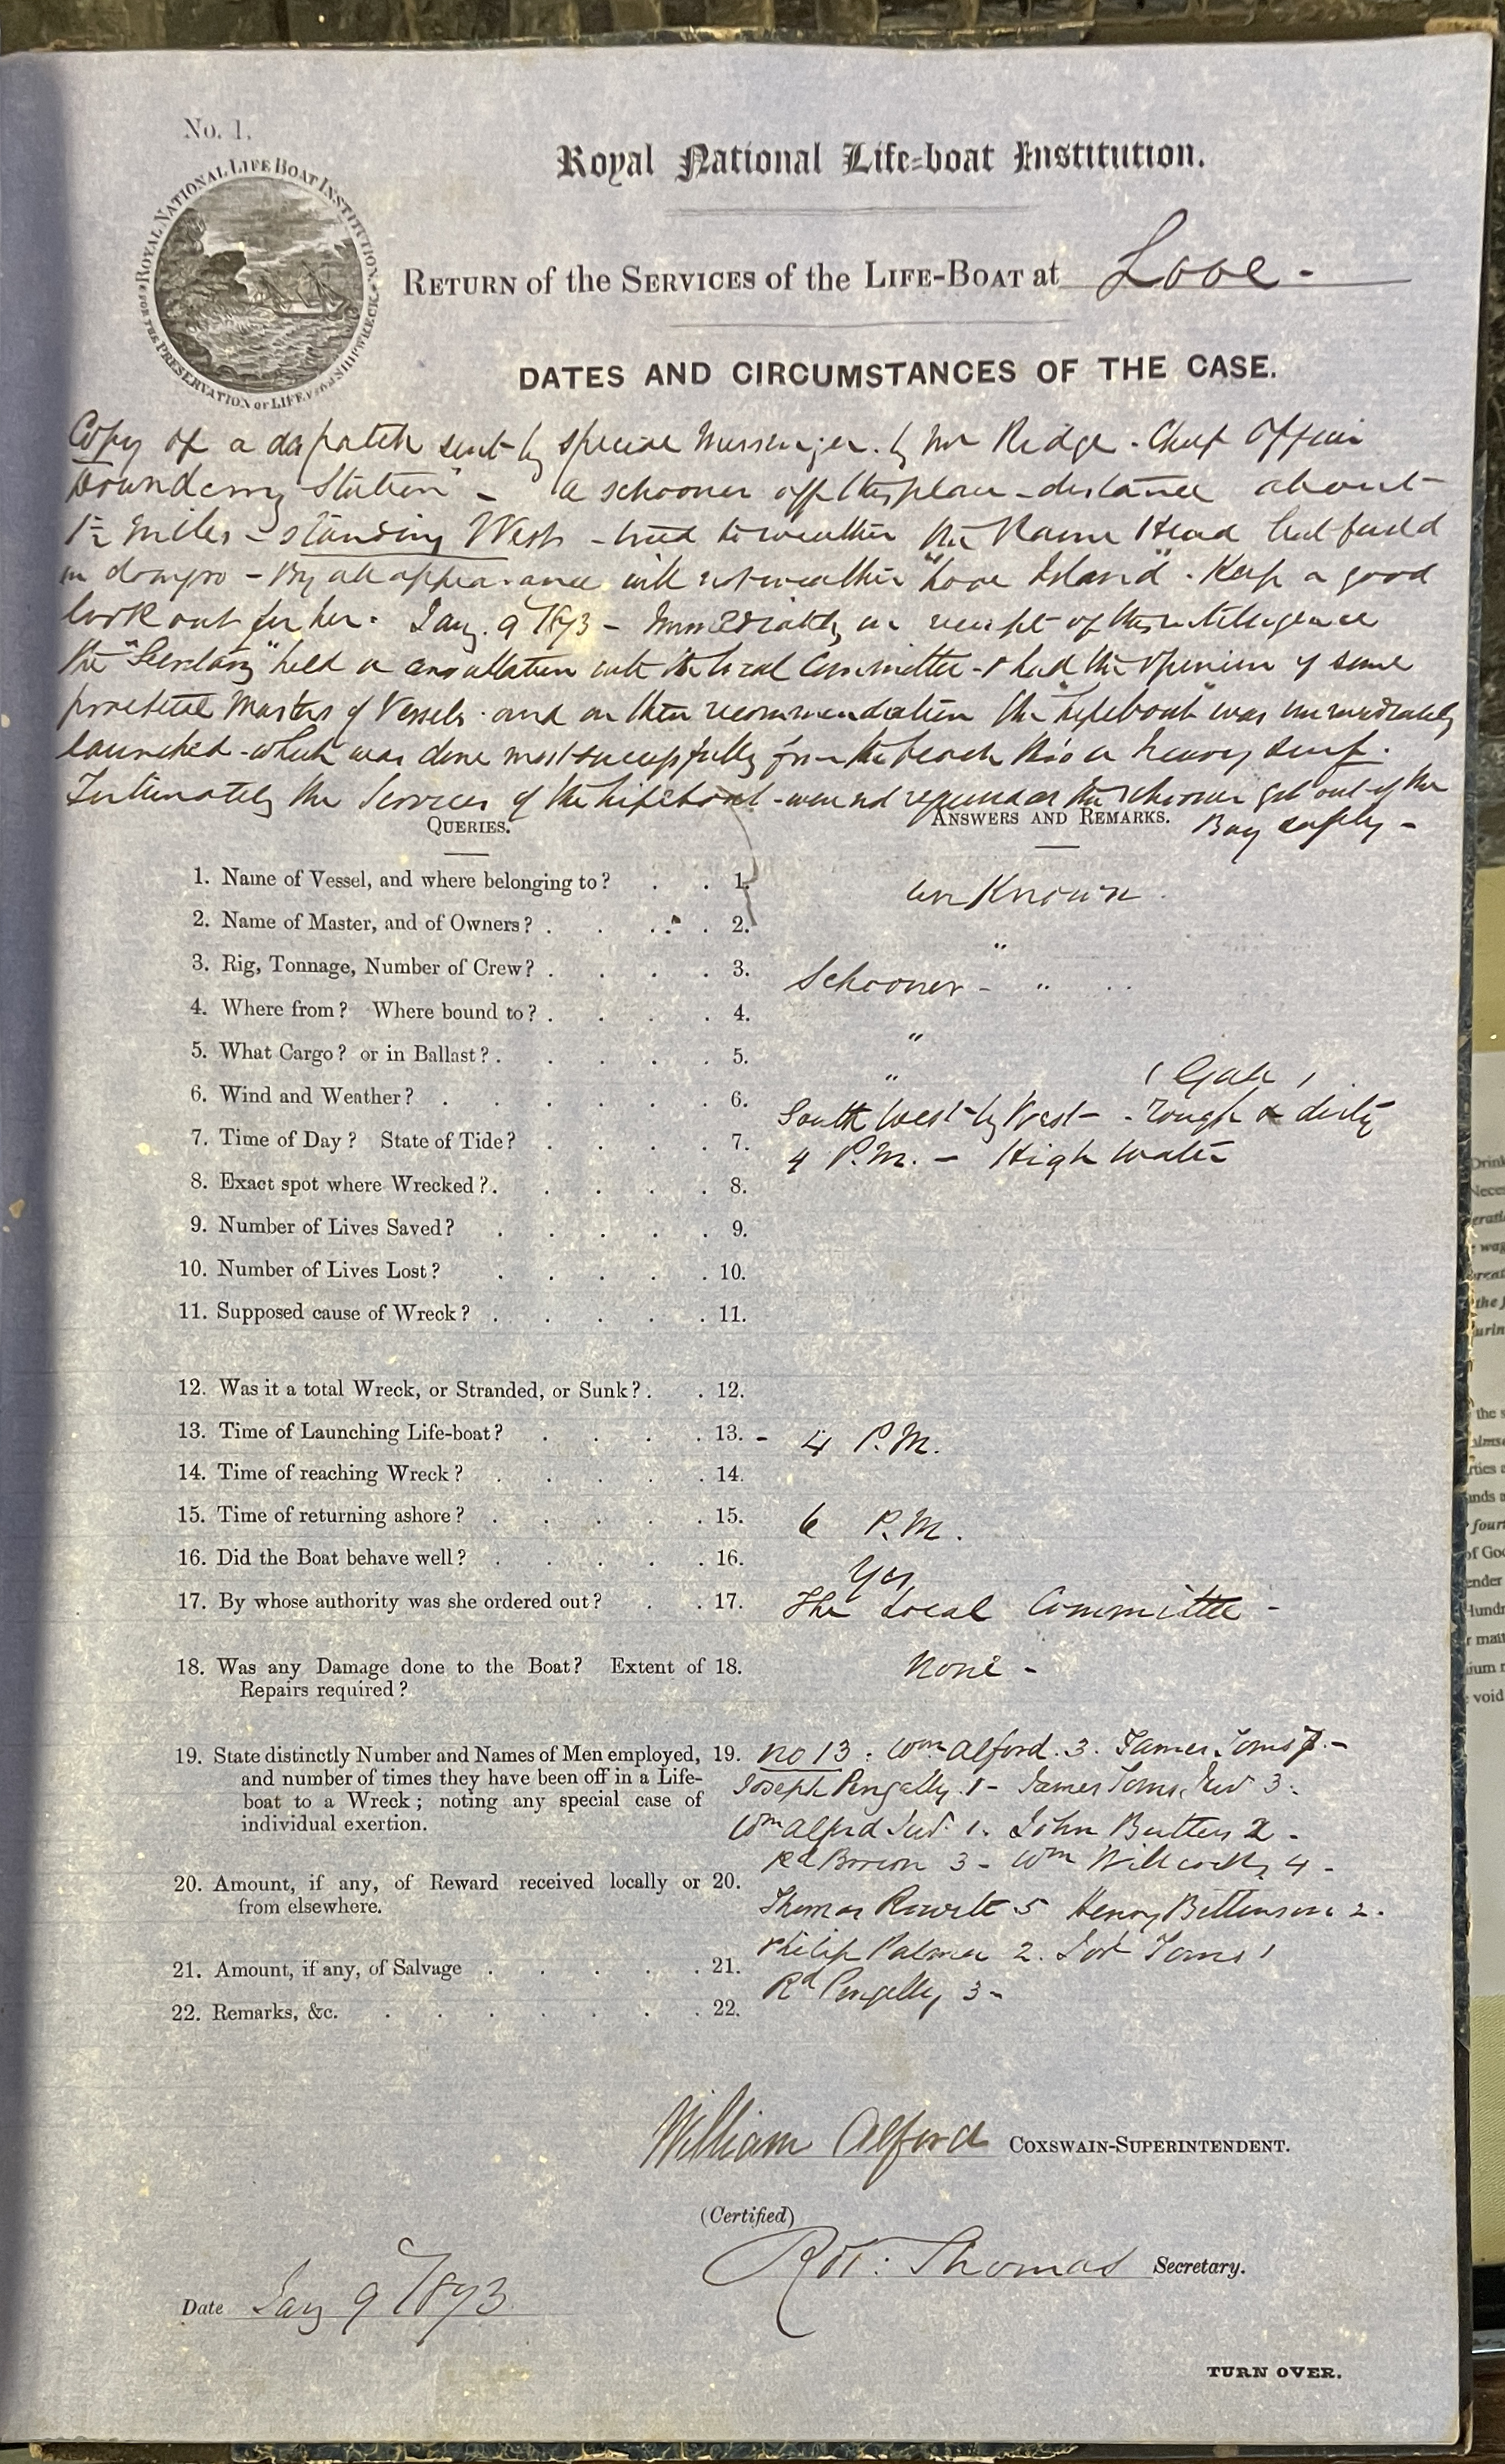 No. 1.
ROYAL NATIONAL LIFE BOAT INSTITUTION
FOR THE PRESERVATION OF LIFE FROM SHIPWRECK
Royal National Life-boat Institution.
RETURN of the SERVICES of the LIFE-BOAT at Looe -
DATES AND CIRCUMSTANCES OF THE CASE.
Copy of a dispatch sent by special Messenger. by Mr Ridge - Chief Officer
Downderry Station" - "a schooner off this place - distance about
1½ miles - standing West - tried to weather the Rame Head but faild
in doing so - By all appearance will not weather "Looe Island". Keep a good
look out for her. Jany. 9 1873 - Immediately on receipt of this intelligence
the "Secretary" held a consultation with the local Committee - & had the opinion of some
practical Masters of Vessels - and on their recommendation the "Lifeboat" was immediately
launched - which was done most successfully from the beach thro a heavy surf.
Fortunately the Services of the Lifeboat - were not required as the schooner got out of the
Bay safely -
QUERIES.
ANSWERS AND REMARKS.
1. Name of Vessel, and where belonging to? . . 1. un Known .
2. Name of Master, and of Owners? . . . . 2. "
3. Rig, Tonnage, Number of Crew? . . . . 3. Schooner - " "
4. Where from? Where bound to? . . . . 4. "
5. What Cargo? or in Ballast? . . . . . 5. "
6. Wind and Weather? . . . . . . 6. South West by West - (Gale) - rough & dirty
7. Time of Day? State of Tide? . . . . 7. 4 P.M. - High water
8. Exact spot where Wrecked? . . . . . 8.
9. Number of Lives Saved? . . . . . 9.
10. Number of Lives Lost? . . . . . 10.
11. Supposed cause of Wreck? . . . . . 11.
12. Was it a total Wreck, or Stranded, or Sunk? . . 12.
13. Time of Launching Life-boat? . . . . 13. - 4 P.M.
14. Time of reaching Wreck? . . . . . 14.
15. Time of returning ashore? . . . . . 15. 6 P.M.
16. Did the Boat behave well? . . . . . 16. Yes
17. By whose authority was she ordered out? . . 17. The Local Committee -
18. Was any Damage done to the Boat? Extent of 18. None -
Repairs required?
19. State distinctly Number and Names of Men employed, 19. No 13 : Wm Alford. 3. James Toms 7. -
and number of times they have been off in a Life- Joseph Pengelly. 1 - James Toms, Jur 3.
boat to a Wreck; noting any special case of
individual exertion. Wm Alford Jur. 1. John Butters 2 -
Rd Brown 3 - Wm Willcocks 4 -
20. Amount, if any, of Reward received locally or 20.
from elsewhere. Thomas 5 Henry Bettinson 2.
21. Amount, if any, of Salvage . . . . . 21. Philip Palmer 2. Toms 1
22. Remarks, &c. . . . . . . . 22. Rd Pengelly 3 -
William Alford COXSWAIN-SUPERINTENDENT.
(Certified)
Rot. Thomas Secretary.
Date Jany 9 1873
TURN OVER.